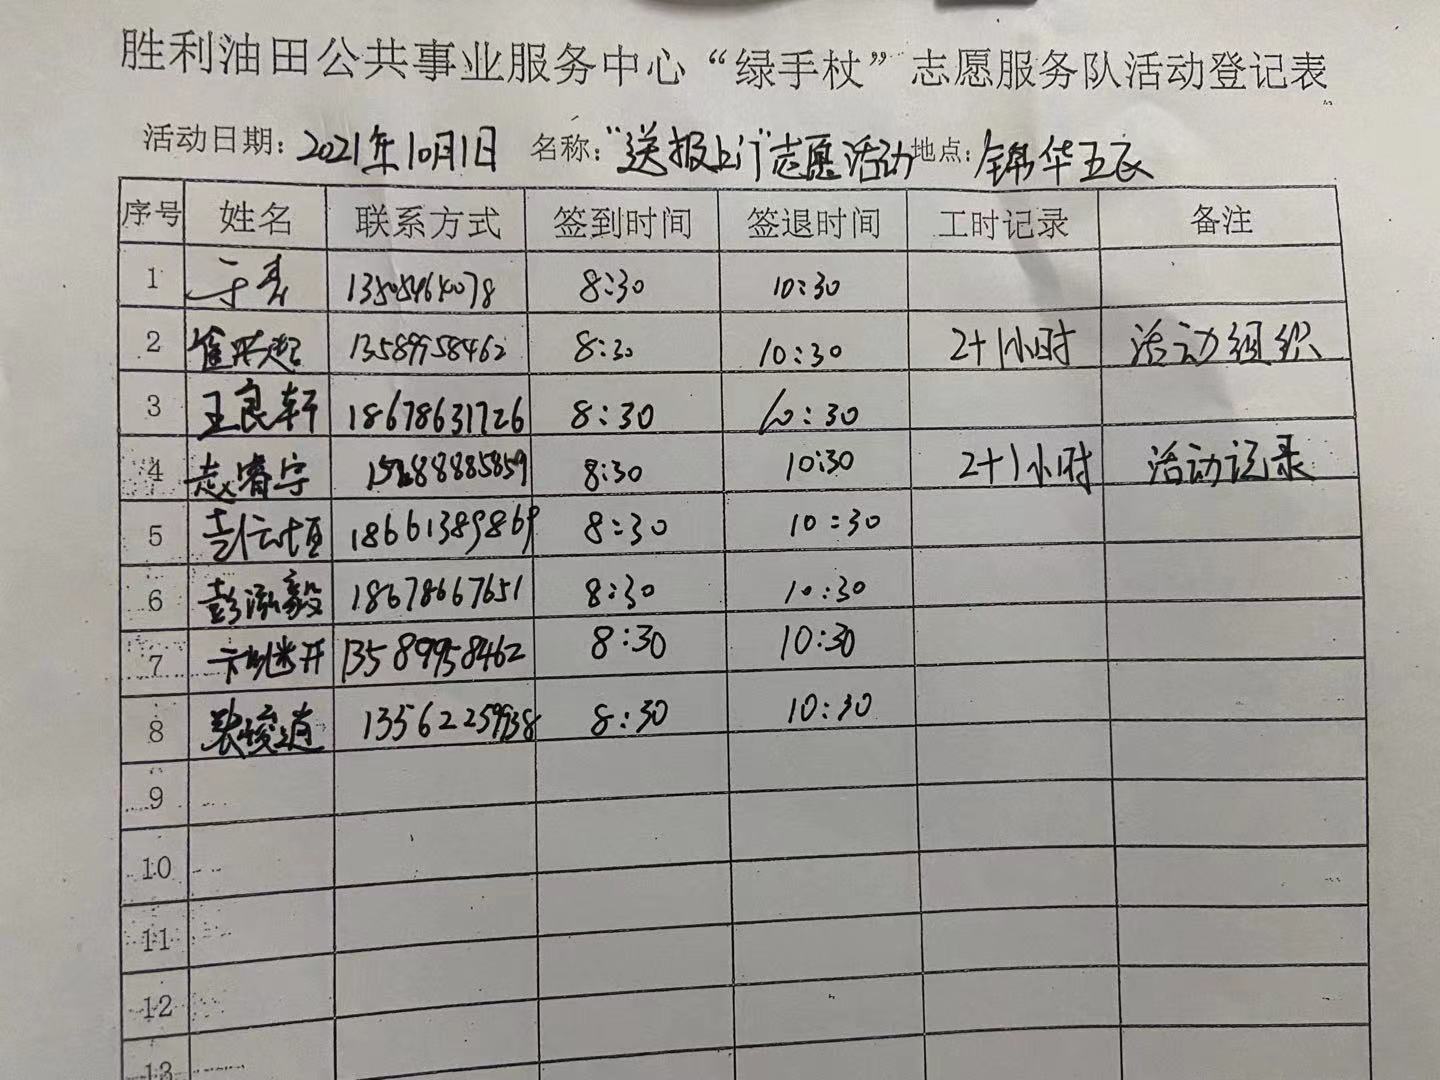 胜利油田公共事业服务中心“绿手杖”志愿服务队活动登记表
活动日期：2021年10月1日 名称：“送报上门”志愿活动 地点：锦华五区
序号 姓名 联系方式 签到时间 签退时间 工时记录 备注
1 8:30 10:30
2 13589958462 8:30 10:30 2+1小时 活动组织
3 王良轩 18678631726 8:30 10:30
4 赵睿宇 8:30 10:30 2+1小时 活动记录
5 18661389869 8:30 10:30
6 彭泓毅 18678667651 8:30 10:30
7 13589958462 8:30 10:30
8 13562259938 8:30 10:30
9
10
11
12
13